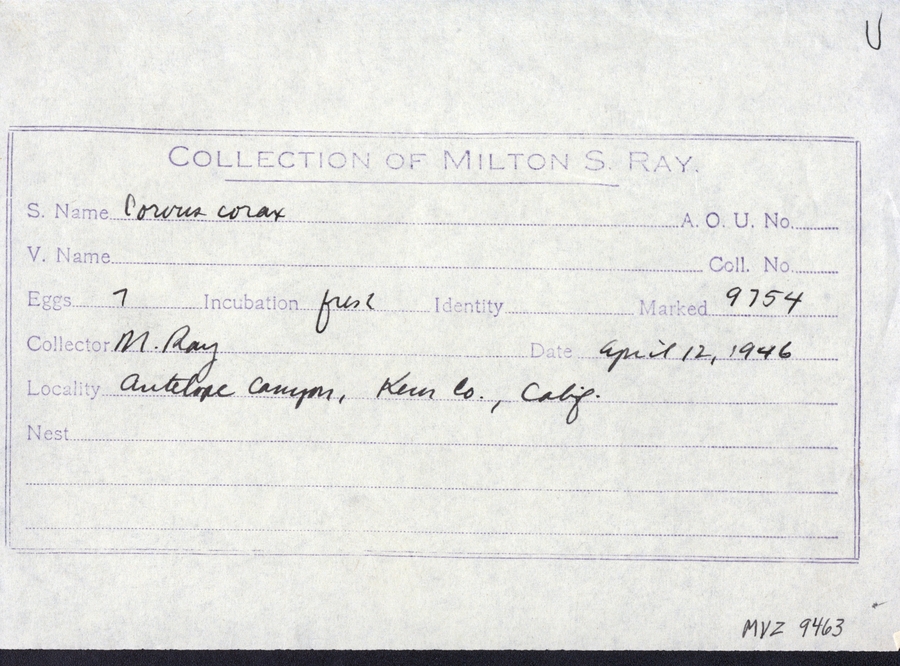 U
COLLECTION OF MILTON S. RAY.
S. Name Corvus corax A. O. U. No.
V. Name Coll. No.
Eggs 7 Incubation fresh Identity Marked 9754
Collector M. Ray Date April 12, 1946
Locality Antelope Canyon, Kern Co., Calif.
Nest
MVZ 9463